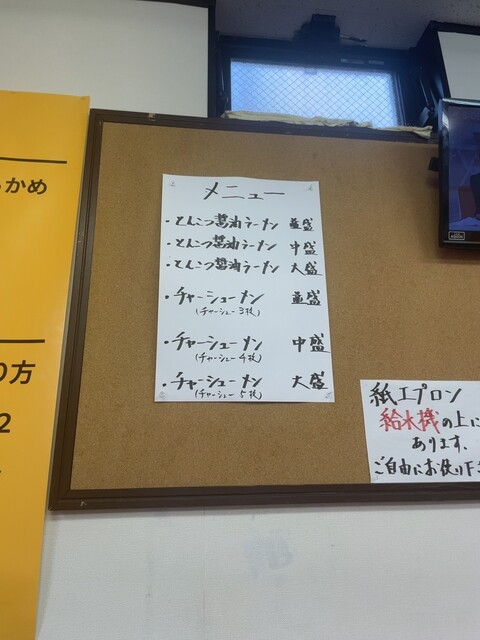 メニュー
・とんこつ醤油ラーメン 並盛
・とんこつ醤油ラーメン 中盛
・とんこつ醤油ラーメン 大盛
・チャーシューメン 並盛
(チャーシュー3枚)
・チャーシューメン 中盛
(チャーシュー4枚)
・チャーシューメン 大盛
(チャーシュー5枚)
紙エプロン
給水機の上に
あります。
ご自由にお使い下さ
かめ
り方
2